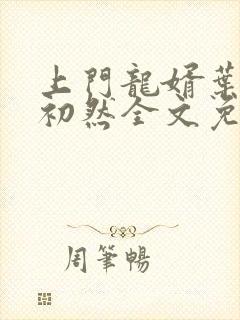 上門龍婿葉
初然全文免
周筆暢